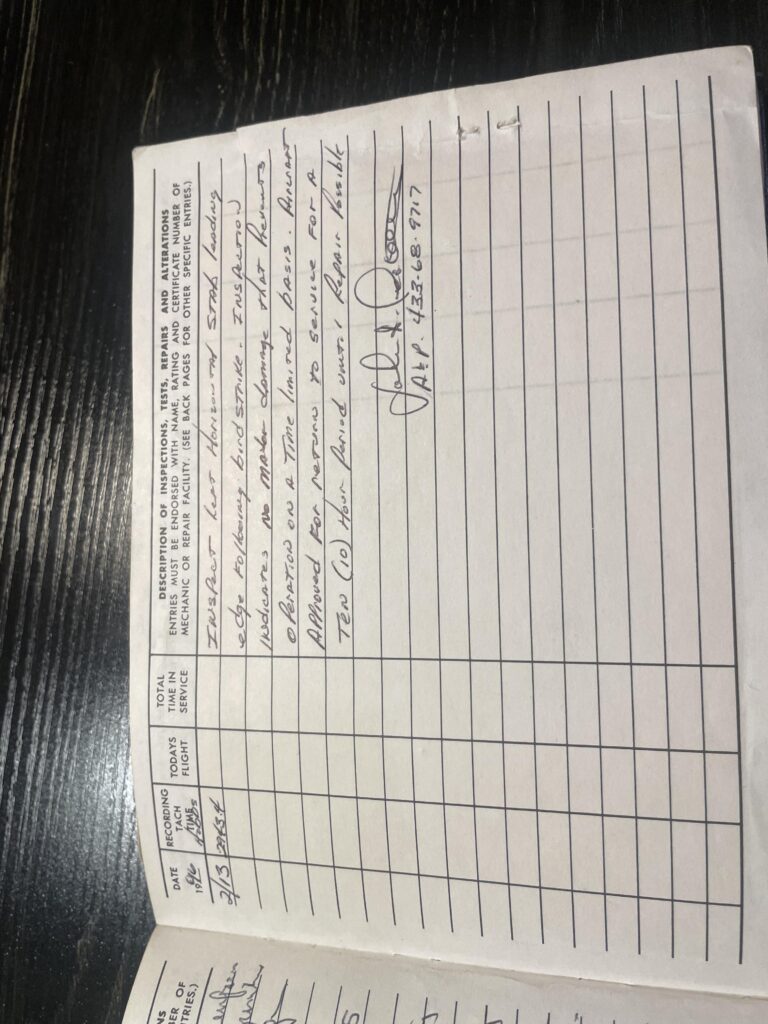 DATE
1996
RECORDING TACH TIME
TODAYS FLIGHT
TOTAL TIME IN SERVICE
DESCRIPTION OF INSPECTIONS, TESTS, REPAIRS AND ALTERATIONS
ENTRIES MUST BE ENDORSED WITH NAME, RATING AND CERTIFICATE NUMBER OF
MECHANIC OR REPAIR FACILITY. (SEE BACK PAGES FOR OTHER SPECIFIC ENTRIES.)
2/13 INSPECT LEFT HORIZONTAL STAB leading
edge following birdSTRIKE. INSPECTION
INdicates NO MAJOR damage THAT Prevents
OPERATION ON A TIME limited basis. AIRCRAFT
APProved FOR return TO SERVICE FOR A
TEN (10) Hour Period until REPAIR Possible
A&P. 433-68-9717
NS
ER OF
TRIES.)